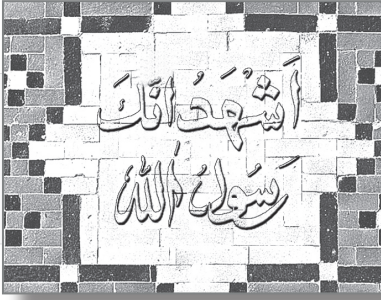 اَشْهَدُ انَّكَ
رَسُولُ اللّٰه